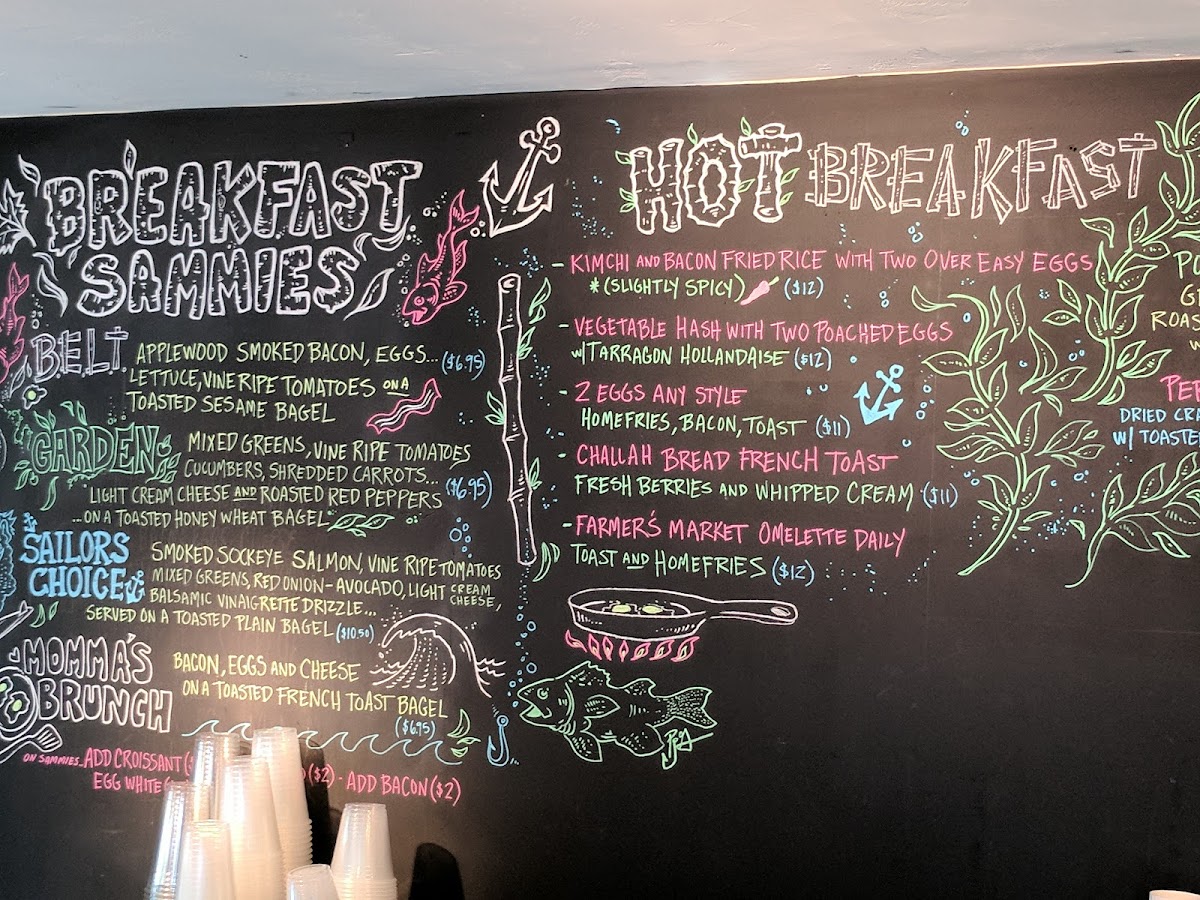 BREAKFAST
SAMMIES
B.E.L.T.
APPLEWOOD SMOKED BACON, EGGS... ($6.95)
LETTUCE, VINE RIPE TOMATOES ON A
TOASTED SESAME BAGEL
GARDEN
MIXED GREENS, VINE RIPE TOMATOES
CUCUMBERS, SHREDDED CARROTS...
LIGHT CREAM CHEESE AND ROASTED RED PEPPERS ($6.95)
...ON A TOASTED HONEY WHEAT BAGEL
SAILORS
CHOICE
SMOKED SOCKEYE SALMON, VINE RIPE TOMATOES
MIXED GREENS, RED ONION-AVOCADO, LIGHT CREAM CHEESE,
BALSAMIC VINAIGRETTE DRIZZLE...
SERVED ON A TOASTED PLAIN BAGEL ($10.50)
MOMMA'S
BRUNCH
BACON, EGGS AND CHEESE
ON A TOASTED FRENCH TOAST BAGEL
($6.95)
ON SAMMIES- ADD CROISSANT (
EGG WHITE ( ($2) - ADD BACON ($2)
HOT BREAKFAST
- KIMCHI AND BACON FRIED RICE WITH TWO OVER EASY EGGS
*(SLIGHTLY SPICY) ($12)
- VEGETABLE HASH WITH TWO POACHED EGGS
W/ TARRAGON HOLLANDAISE ($12)
- 2 EGGS ANY STYLE
HOMEFRIES, BACON, TOAST ($11)
- CHALLAH BREAD FRENCH TOAST
FRESH BERRIES AND WHIPPED CREAM ($11)
- FARMER'S MARKET OMELETTE DAILY
TOAST AND HOMEFRIES ($12)
ROAS
DRIED CRA
W/ TOASTE